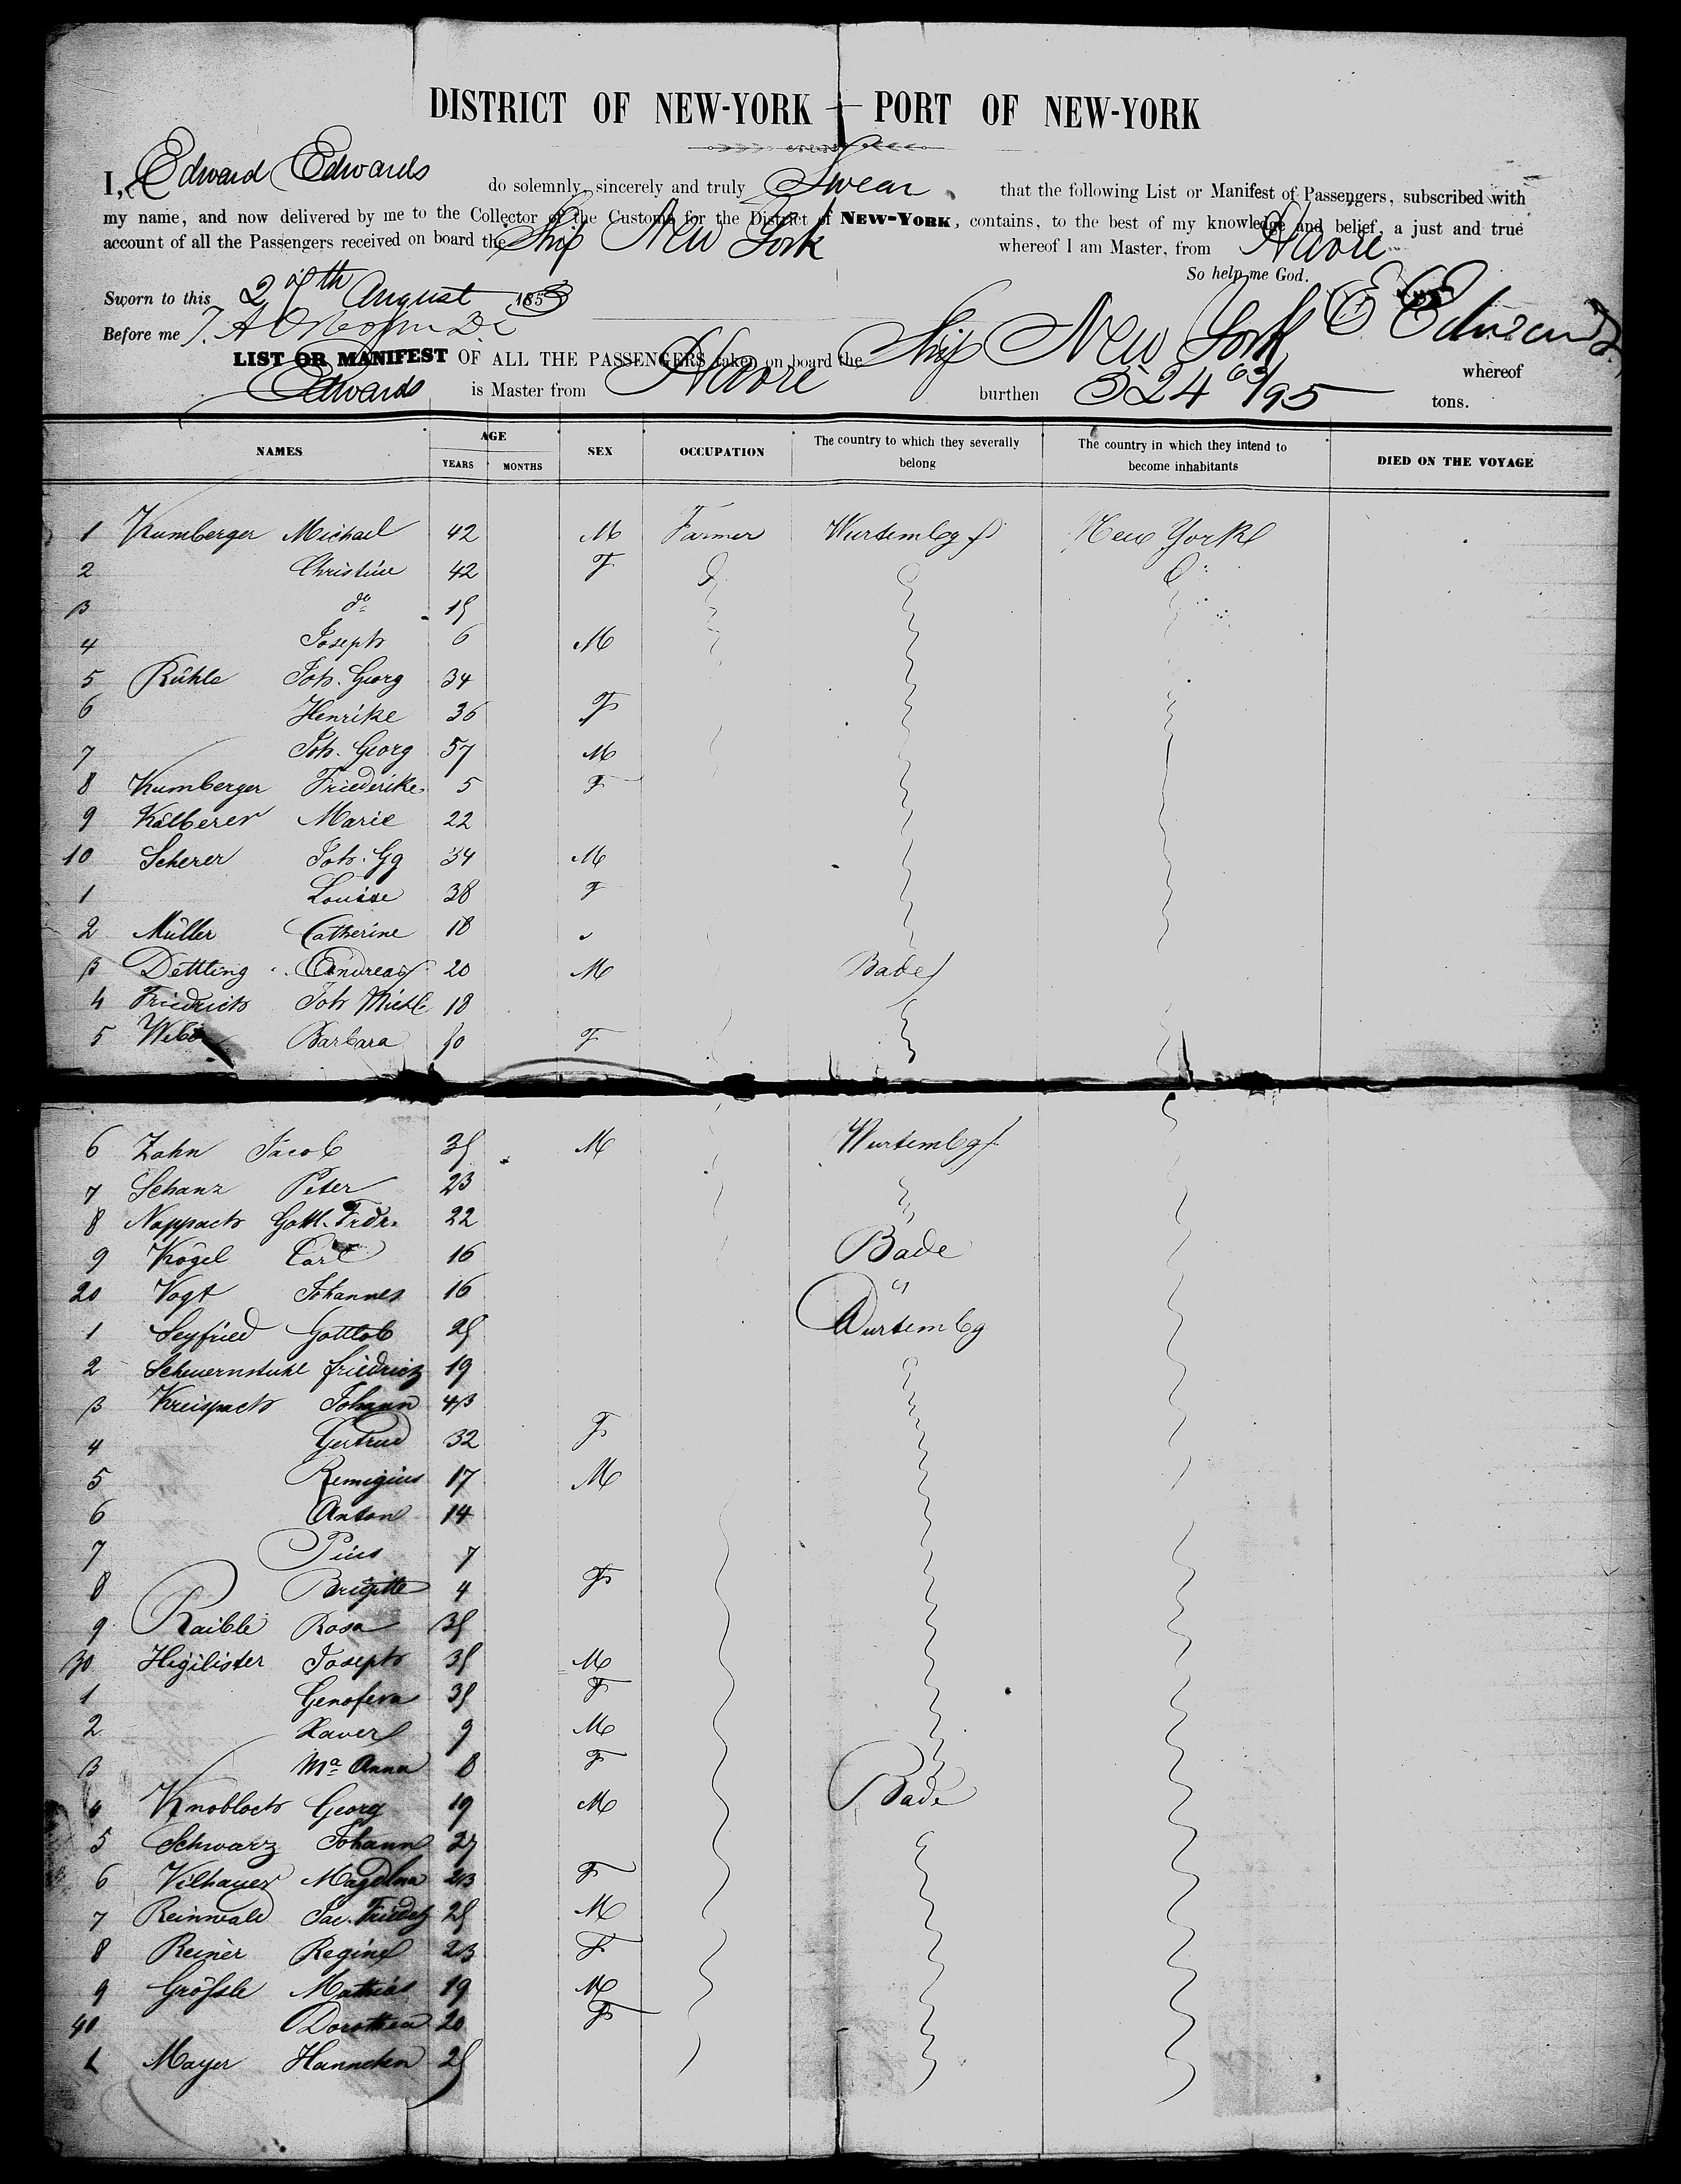 DISTRICT OF NEW-YORK PORT OF NEW-YORK
I, Edward Edwards do solemnly, sincerely and truly Swear that the following List or Manifest of Passengers, subscribed with
my name, and now delivered by me to the Collector of the Customs for the District of NEW-YORK, contains, to the best of my knowledge and belief, a just and true
account of all the Passengers received on board the Ship New York whereof I am Master, from Havre
So help me God.
Sworn to this August 1853
E Edwards
Before me
LIST OR MANIFEST OF ALL THE PASSENGERS taken on board the Ship New York whereof
Edwards is Master from Havre burthen 524 63/95 tons.
NAMES AGE YEARS MONTHS SEX OCCUPATION The country to which they severally belong The country in which they intend to become inhabitants DIED ON THE VOYAGE
1 Krumberger Michael 42 M Farmer Wurtembg New York
2 Christine 42 F
3 do 15
4 Joseph 6 M
5 Rühle Joh. Georg 34
6 Henrike 36 F
7 Joh. Georg 57 M
8 Krumberger Friederike 5 F
9 Kälberer Marie 22
10 Scherer Joh. Gg 34 M
1 Louise 38 F
2 Müller Catherine 18
3 Dettling Andreas 20 M Bade
4 Friedrich Joh Michl 18
5 Barbara 50 F
6 Zahn Jacob 35 M Wurtembg
7 Schanz Peter 23
8 Nappach Gottl. Frdr. 22
9 Kögel Carl 16 Bade
20 Vogt Johannes 16
1 Seyfried Gottlob 25 Wurtembg
2 Scheuernstuhl Friedrich 19
3 Kreispach Johann 43
4 Gertrud 32 F
5 Remigius 17 M
6 Anton 14
7 Pius 7
8 Brigitte 4 F
9 Raible Rosa 35
30 Higilister Joseph 35 M
1 Genofeva 35 F
2 Xaver 9 M
3 Ma Anna 8 F
4 Knobloch Georg 19 M Bade
5 Schwarz Johann 27
6 Vilhauer Magdlna 23 F
7 Reinwald Jac. Friedch 25 M
8 Reiner Regine 23 F
9 Größle Mathias 19 M
40 Dorothea 20 F
1 Mayer Hannchen 25